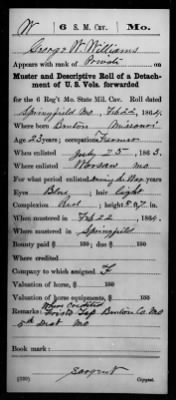 W 6 S. M. Cav. Mo.
George W. Williams
Appears with rank of Private
Muster and Descriptive Roll of a Detachment
of U. S. Vols. forwarded
for the 6 Reg't Mo. State Mil. Cav. Roll dated
Springfield Mo. Feb 22, 1864.
Where born Benton Missouri
Age 23 years; occupation Farmer
When enlisted July 25, 1863.
Where enlisted Warsaw Mo
For what period enlisted during the War years
Eyes Blue; hair light
Complexion Red; height 5 ft. 7 in.
When mustered in Feb 22, 1864.
Where mustered in Springfield
Bounty paid $ 100; due $ 100
Where credited
Company to which assigned F
Valuation of horse, $ 100
Valuation of horse equipments, $ 100
Remarks: Where Credited
Benton Co Mo
5th Dist Mo
Book mark:
Sargent
(339) Copyist.